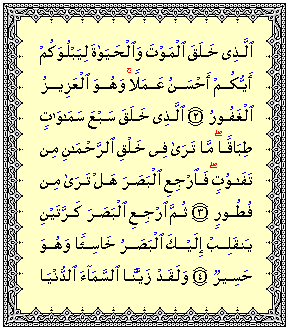 ٱلَّذِى خَلَقَ ٱلْمَوْتَ وَٱلْحَيَوٰةَ لِيَبْلُوَكُمْ
أَيُّكُمْ أَحْسَنُ عَمَلًاۚ وَهُوَ ٱلْعَزِيزُ
ٱلْغَفُورُ ﴿٢﴾ ٱلَّذِى خَلَقَ سَبْعَ سَمَٰوَٰتٍ
طِبَاقًاۖ مَّا تَرَىٰ فِى خَلْقِ ٱلرَّحْمَٰنِ مِن
تَفَٰوُتٍۖ فَٱرْجِعِ ٱلْبَصَرَ هَلْ تَرَىٰ مِن
فُطُورٍ ﴿٣﴾ ثُمَّ ٱرْجِعِ ٱلْبَصَرَ كَرَّتَيْنِ
يَنقَلِبْ إِلَيْكَ ٱلْبَصَرُ خَاسِئًا وَهُوَ
حَسِيرٌ ﴿٤﴾ وَلَقَدْ زَيَّنَّا ٱلسَّمَآءَ ٱلدُّنْيَا